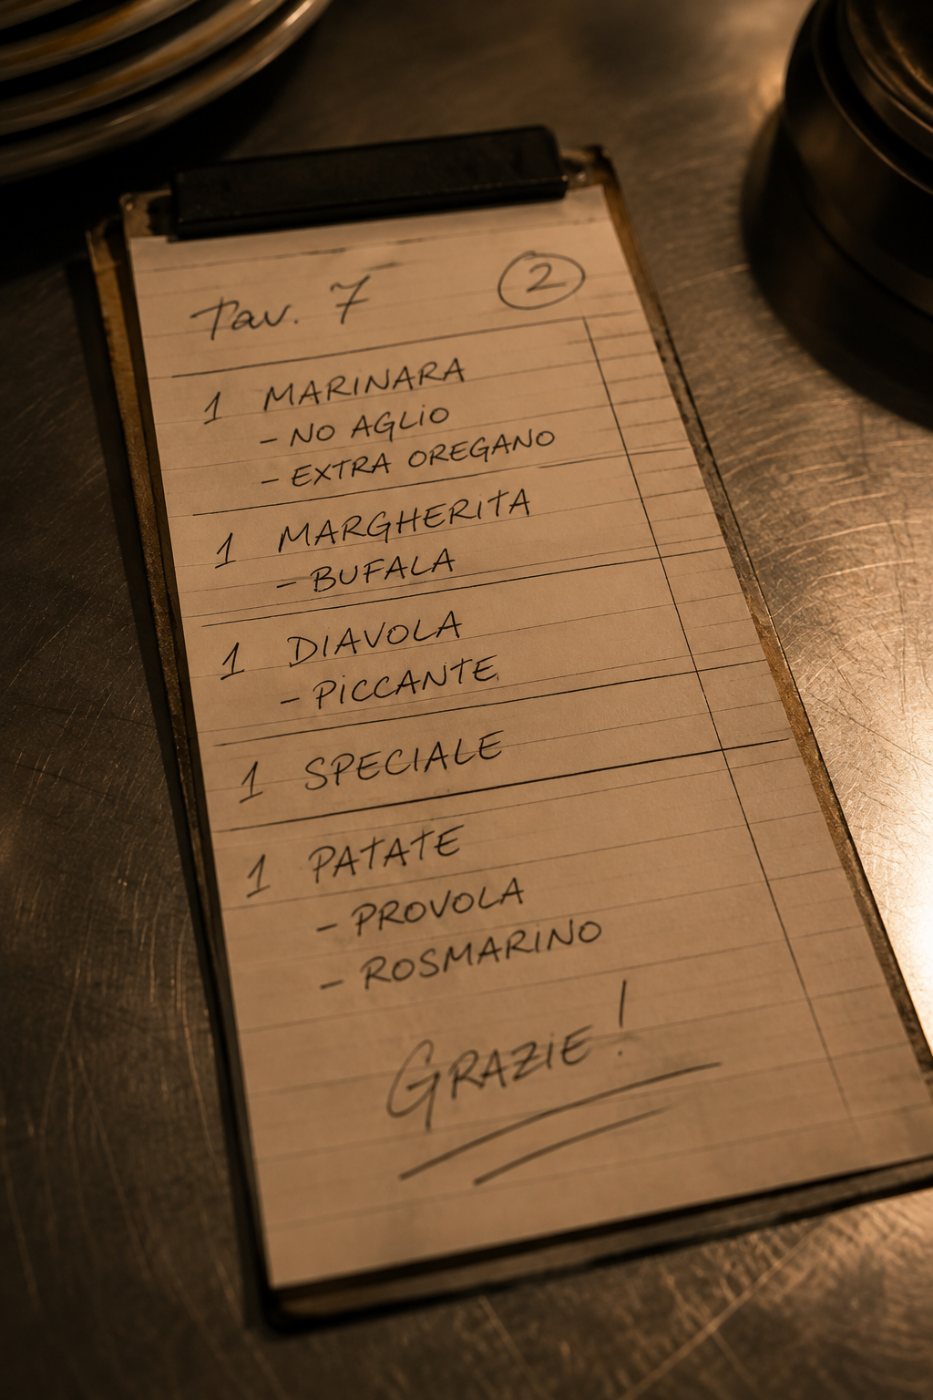 Tav. 7 2
1 MARINARA
- NO AGLIO
- EXTRA OREGANO
1 MARGHERITA
- BUFALA
1 DIAVOLA
- PICCANTE
1 SPECIALE
1 PATATE
- PROVOLA
- ROSMARINO
GRAZIE!